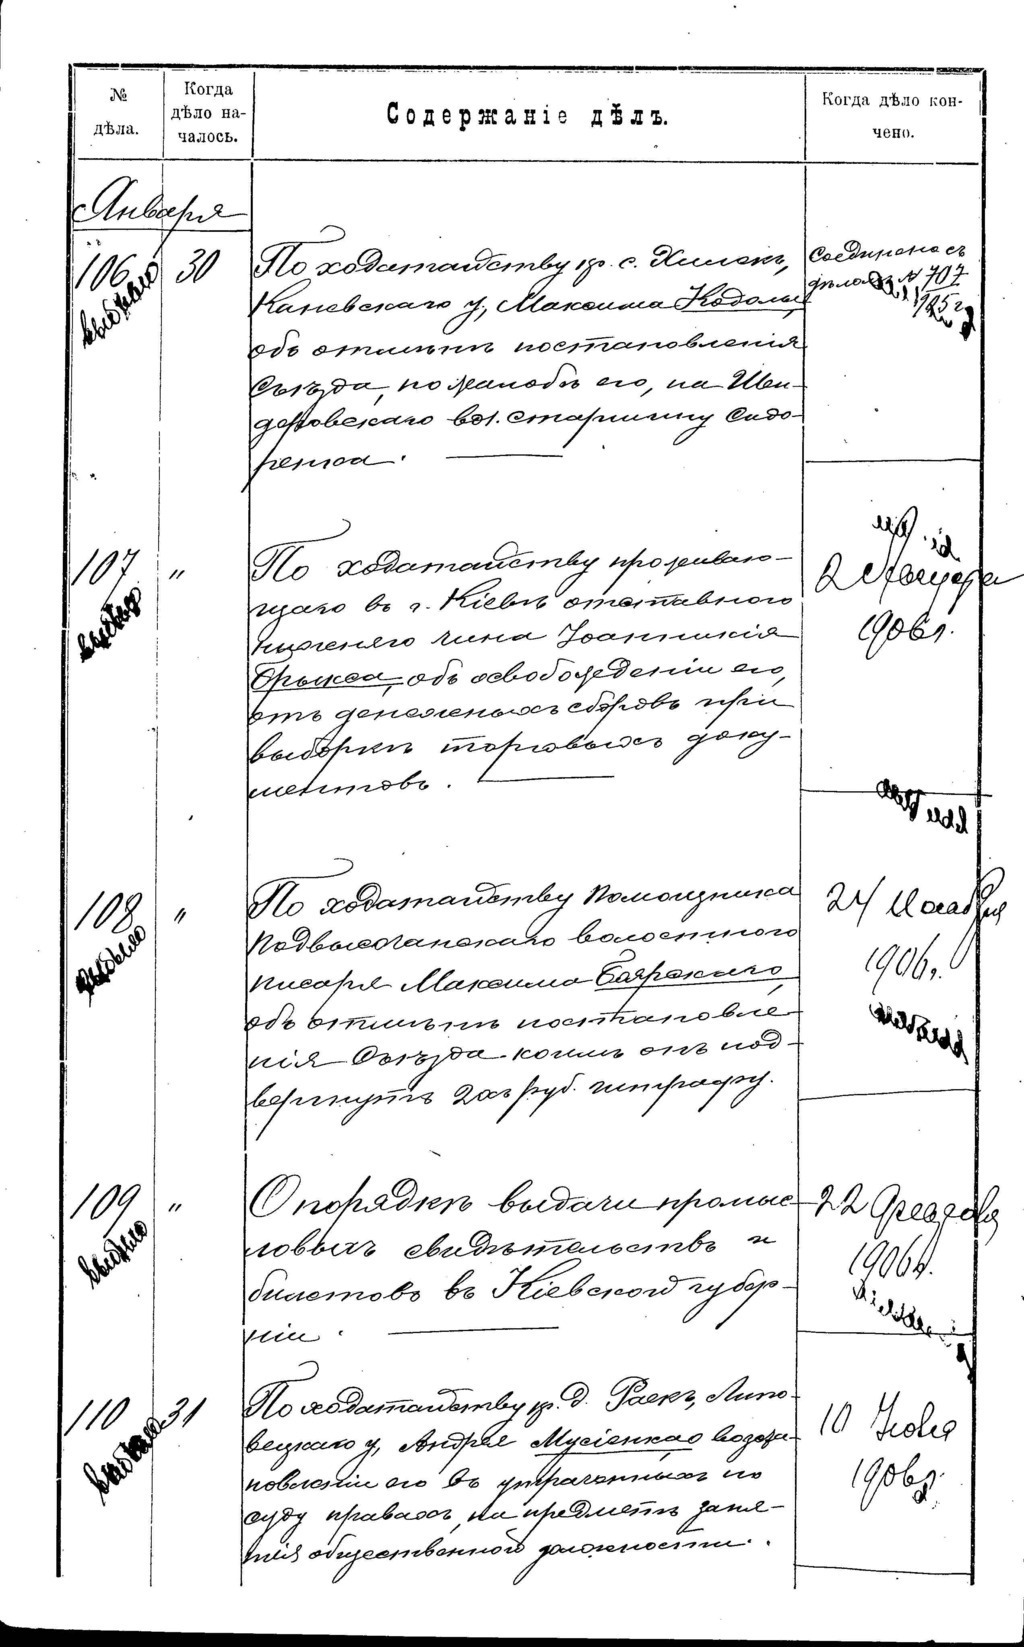 № дѣла.
Когда дѣло началось.
Содержаніе дѣлъ.
Когда дѣло кончено.
Января
106 выбыло 30
По ходатайству кр. с.
Каневскаго у, Максима
объ отмѣнѣ постановленія
Съѣзда, по жалобѣ его, на Шен-
деровскаго вол. старшину Сидо-
ренка.
Соединено съ
дѣломъ № 707
1905 г
107 выбыло "
По ходатайству проживаю-
щаго въ г. Кіевѣ отставного
нижняго чина Іоанникія
объ освобожденіи его,
отъ денежныхъ сборовъ при
выборкѣ торговыхъ доку-
ментовъ.
2 Августа
1906 г.
108 выбыло "
По ходатайству Помощника
Подвысочанскаго волостного
писаря Максима Боярскаго,
объ отмѣнѣ постановле-
нія Съѣзда коимъ онъ под-
вергнутъ 2хъ руб. штрафу.
24 Ноября
1906 г.
109 выбыло "
О порядкѣ выдачи промыс-
ловыхъ свидѣтельствъ и
билетовъ въ Кіевской губер-
ніи.
22 Февраля
1906 г.
110 выбыло 31
По ходатайству кр. д. Раекъ, Липо-
вецкаго у, Андрея Мусіенка о возста-
новленіи его въ утраченныхъ по
суду правахъ, на предметъ заня-
тія общественной должности.
10 Іюня
1906 г.